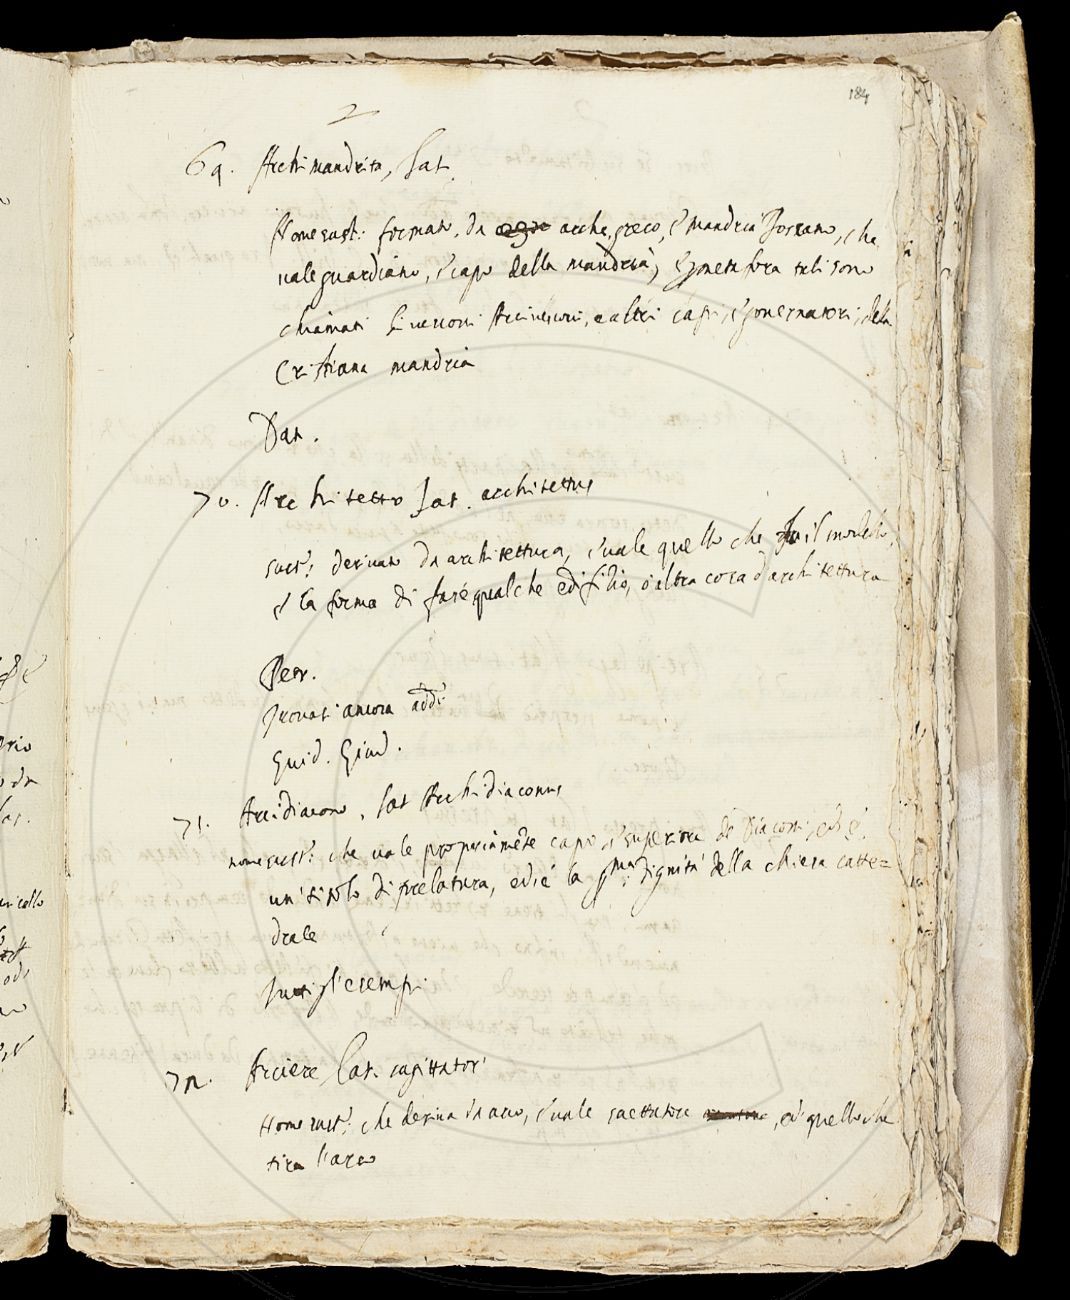 184
2
69. Archimandrita, Lat.
Nome sust: formato, da arche, greco, e mandria Toscano, che
vale guardiano, e capo della mandria, e metafora tali sono
chiamati li vescovi Arcivescovi, e altri capi, e governatori, della
Cristiana mandria
Dan.
70. Architetto Lat. architettus
sust: derivato da architettura, e vale quello che fa il modello,
e la forma di fare qualche edifitio, o altra cosa d'architettura
Petr.
Trovati ancora add:
Guid. Giud.
71. Arcidiacono, Lat Archidiaconus
nome sust: che vale propriamẽte capo, e superiore de Diaconi, ed è
un titolo di prelatura, ed è la pma dignità della chiesa catte=
drale
Tutti gl'esempi
72. Arciere Lat. sagittator
Nome sust: che deriva da arco, e vale saettatore, ed quello che
tira l'arco